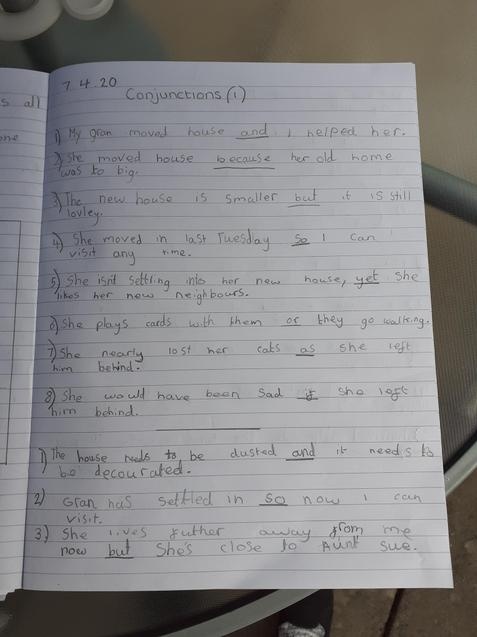 s all
one
7.4.20
Conjunctions (1)
1) My gran moved house and I helped her.
2) She moved house because her old home
was to big.
3) The new house is smaller but it is still
lovley.
4) She moved in last Tuesday so I can
visit any time.
5) She isn't settling into her new house, yet she
likes her new neighbours.
6) She plays cards with them or they go walking.
7) She nearly lost her cats as she left
him behind.
8) She would have been sad if she left
him behind.
1) The house needs to be dusted and it needs to
be decourated.
2) Gran has settled in so now I can
visit.
3) She lives futher away from me
now but she's close to Aunt Sue.